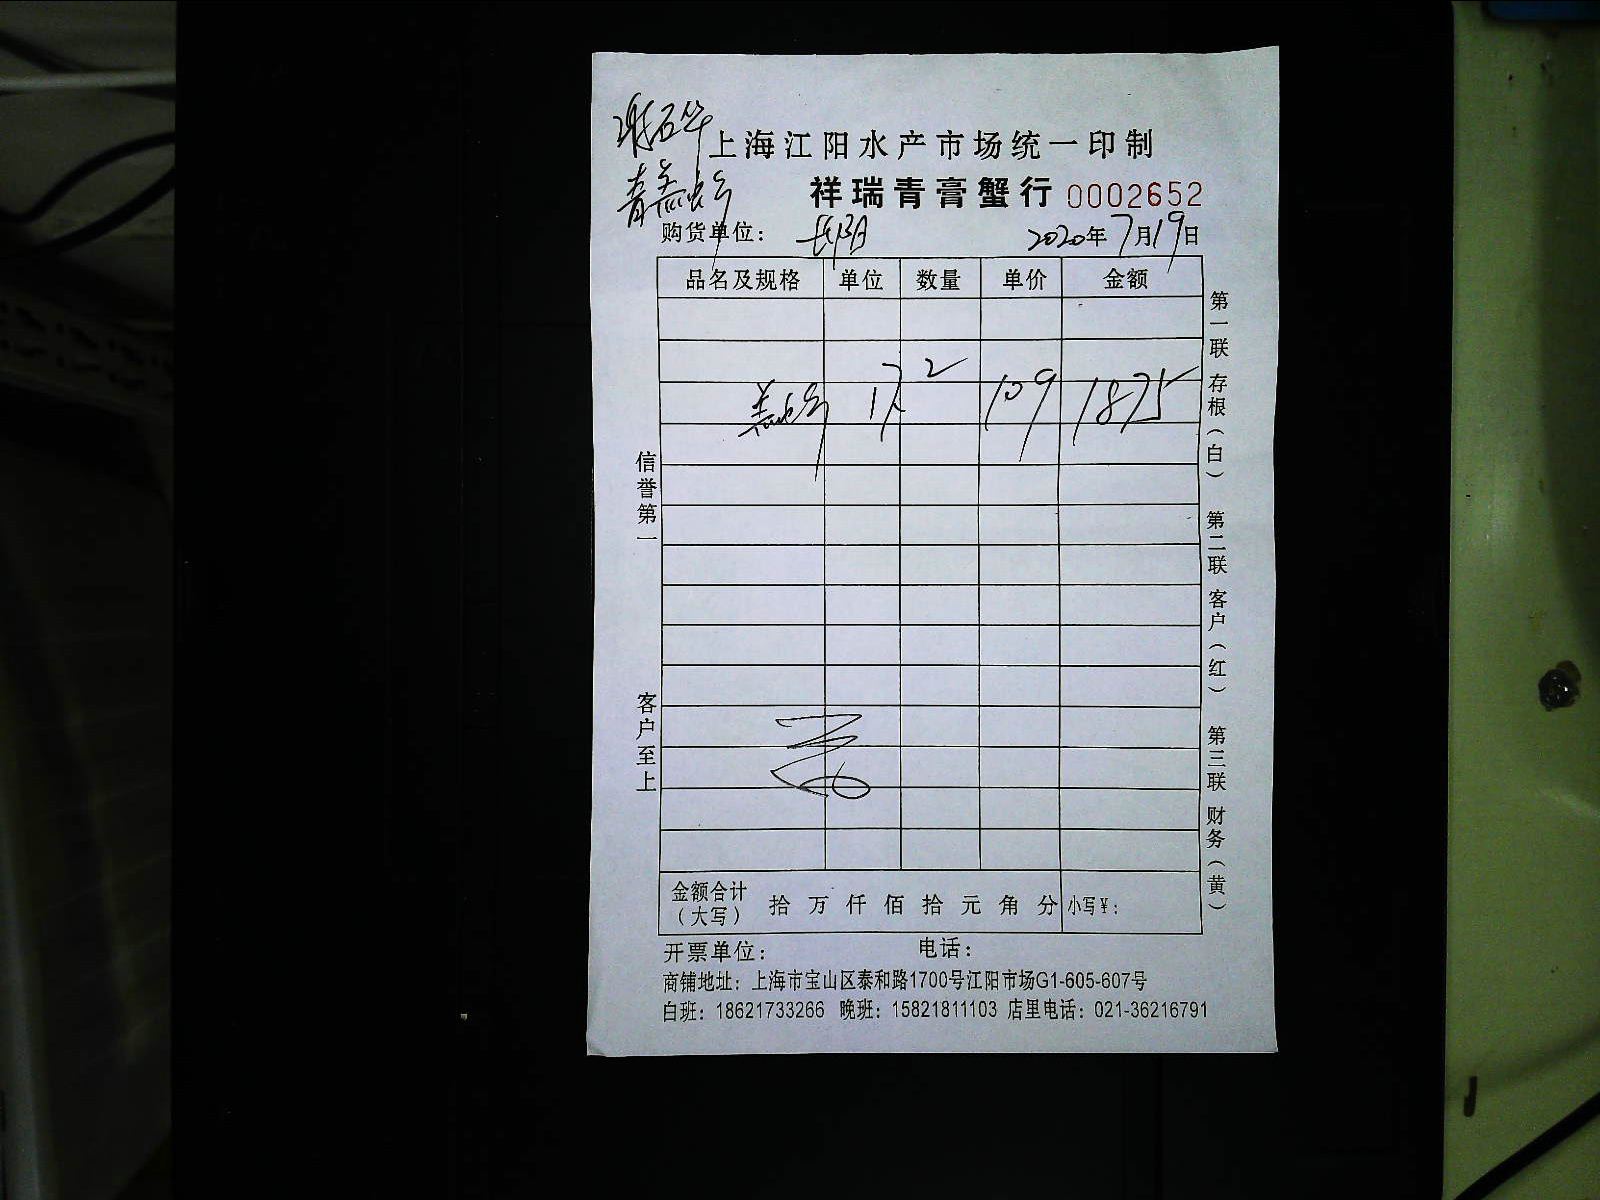 上海江阳水产市场统一印制
祥瑞青膏蟹行 0002652
购货单位： 长阳 2020年7月19日
品名及规格 单位 数量 单价 金额
17.2 109 1875
信誉第一
客户至上
第一联 存根（白） 第二联 客户（红） 第三联 财务（黄）
金额合计（大写） 拾 万 仟 佰 拾 元 角 分 小写¥：
开票单位： 电话：
商铺地址：上海市宝山区泰和路1700号江阳市场G1-605-607号
白班：18621733266 晚班：15821811103 店里电话：021-36216791